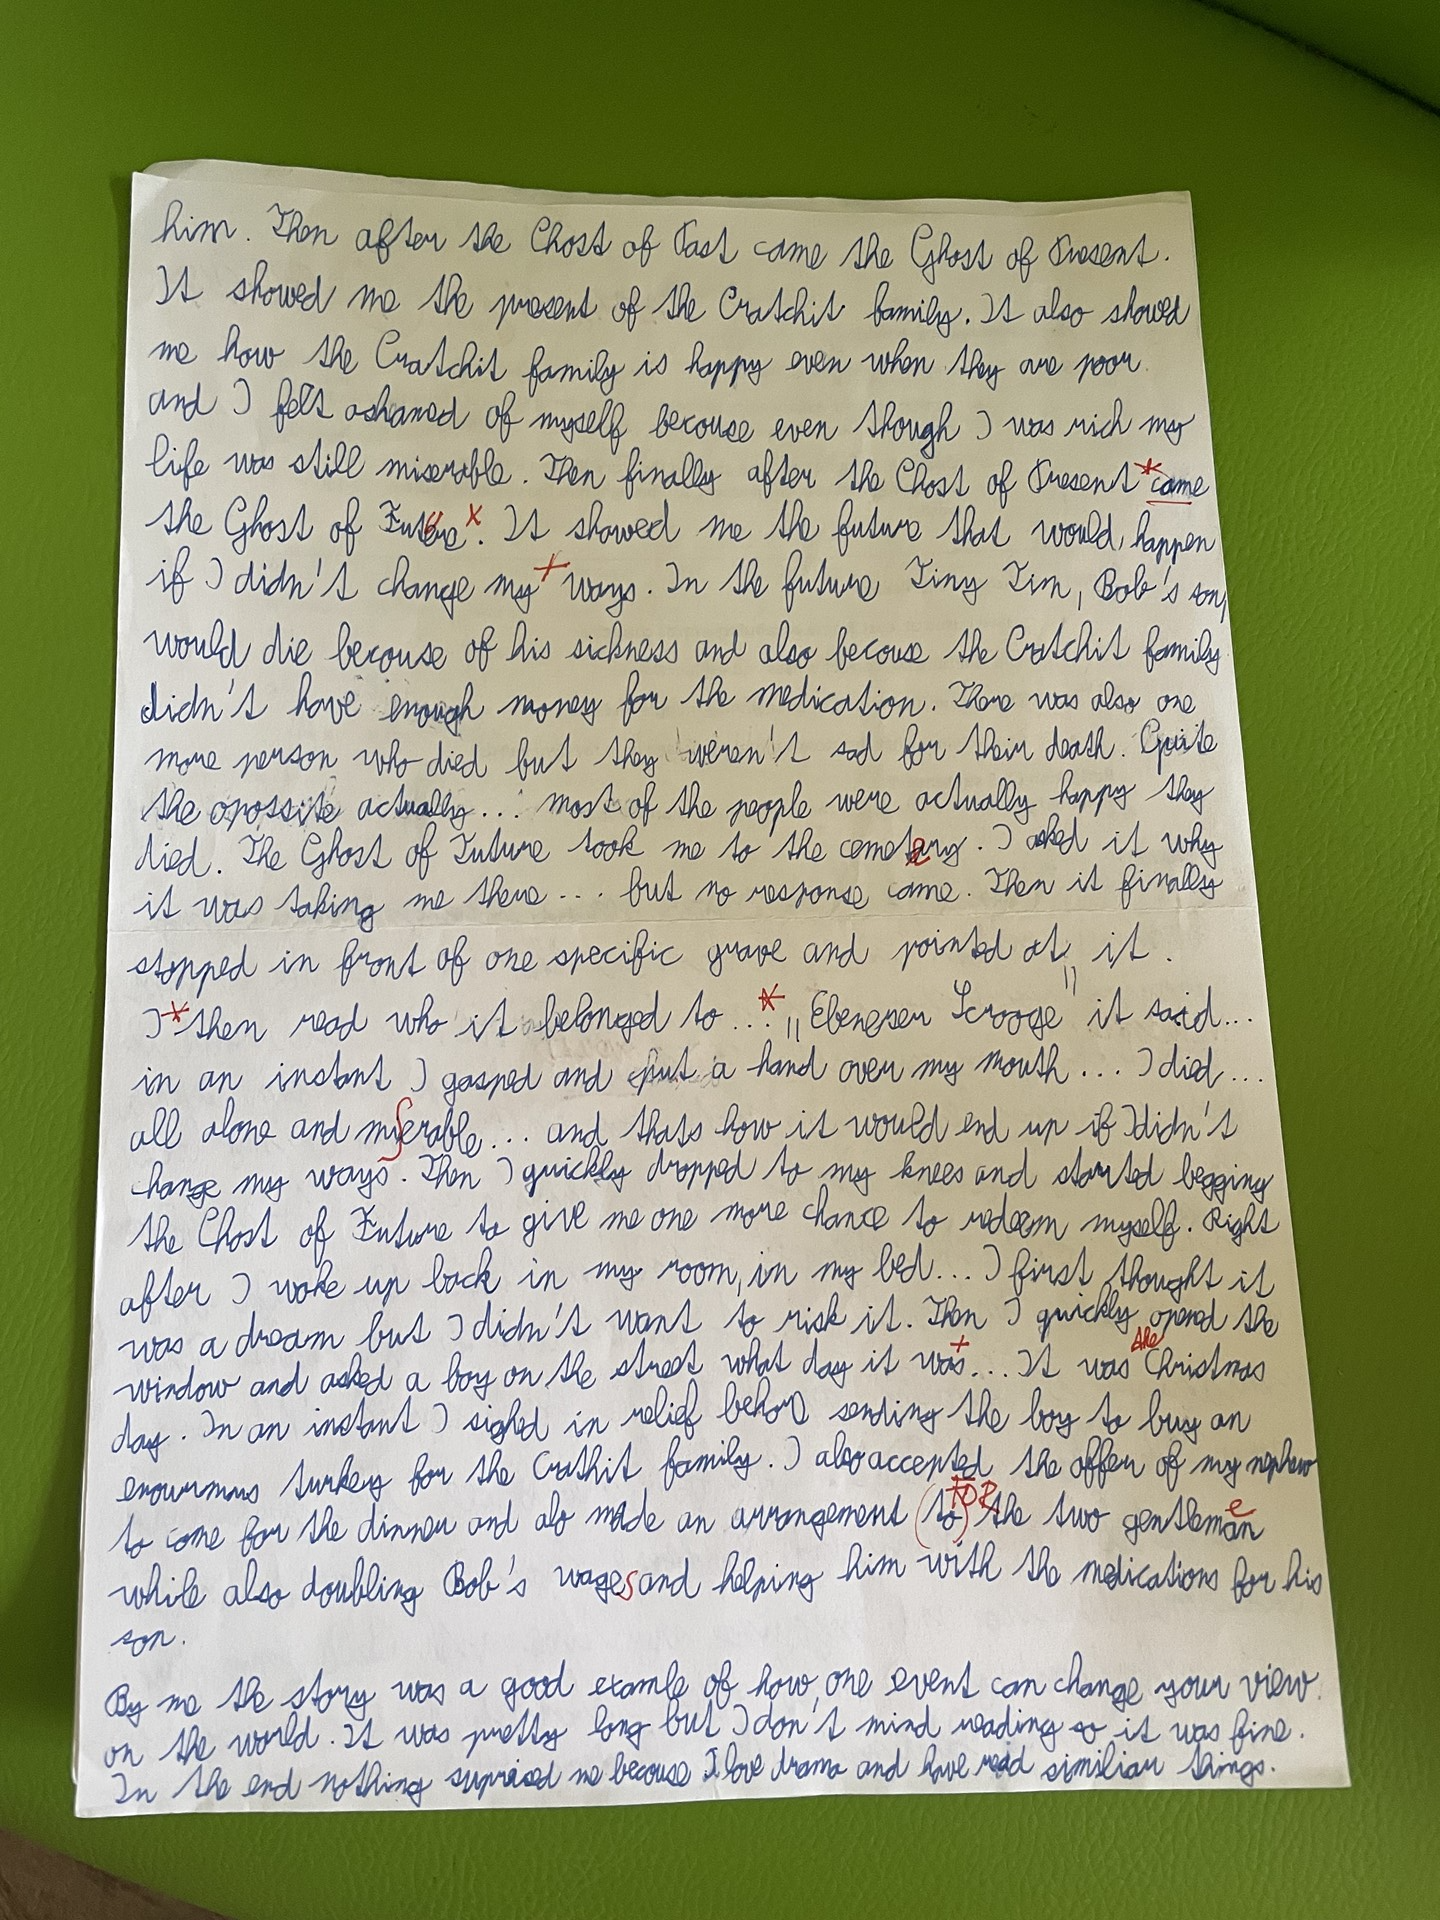 him. Then after the Ghost of Past came the Ghost of Present.
It showed me the present of the Cratchit family. It also showed
me how the Cratchit family is happy even when they are poor
and I felt ashamed of myself because even though I was rich my
life was still miserable. Then finally after the Ghost of Present * came
the Ghost of Future x. It showed me the future that would happen
if I didn't change my + ways. In the future Tiny Tim, Bob's son,
would die because of his sickness and also because the Cratchit family
didn't have enough money for the medication. There was also one
more person who died but they weren't sad for their death. Quite
the opossite actually... most of the people were actually happy they
died. The Ghost of Future took me to the cemetery. I asked it why
it was taking me there... but no response came. Then it finally
stopped in front of one specific grave and pointed at it.
I * then read who it belonged to... * „Ebenezer Scrooge" it said...
in an instant I gasped and put a hand over my mouth... I died...
all alone and miserable... and thats how it would end up if I didn't
change my ways. Then I quickly dropped to my knees and started begging
the Ghost of Future to give me one more chance to redeem myself. Right
after I woke up back in my room, in my bed... I first thought it
was a dream but I didn't want to risk it. Then I quickly opend the
window and asked a boy on the street what day it was +... It was the Christmas
day. In an instant I sighed in relief before sending the boy to buy an
enourmus turkey for the Crathit family. I also accepted the offer of my nephew
to come for the dinner and also made an arrangement (to) FOR the two gentlemen
while also doubling Bob's wages and helping him with the medications for his
son.
By me the story was a good examle of how one event can change your view
on the world. It was pretty long but I don't mind reading so it was fine.
In the end nothing suprised me because I love drama and have read similiar things.